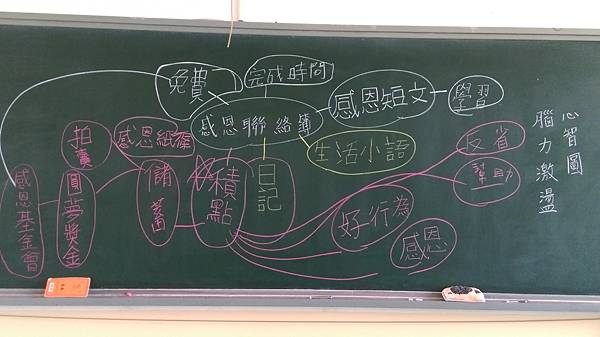 免費
完成時間
感恩短文
學習
感恩聯絡簿
生活小語
拍賣
感恩紙磚
儲蓄
積點
日記
反省
幫助
好行為
感恩
圓夢獎金
感恩基金會
心智圖
腦力激盪